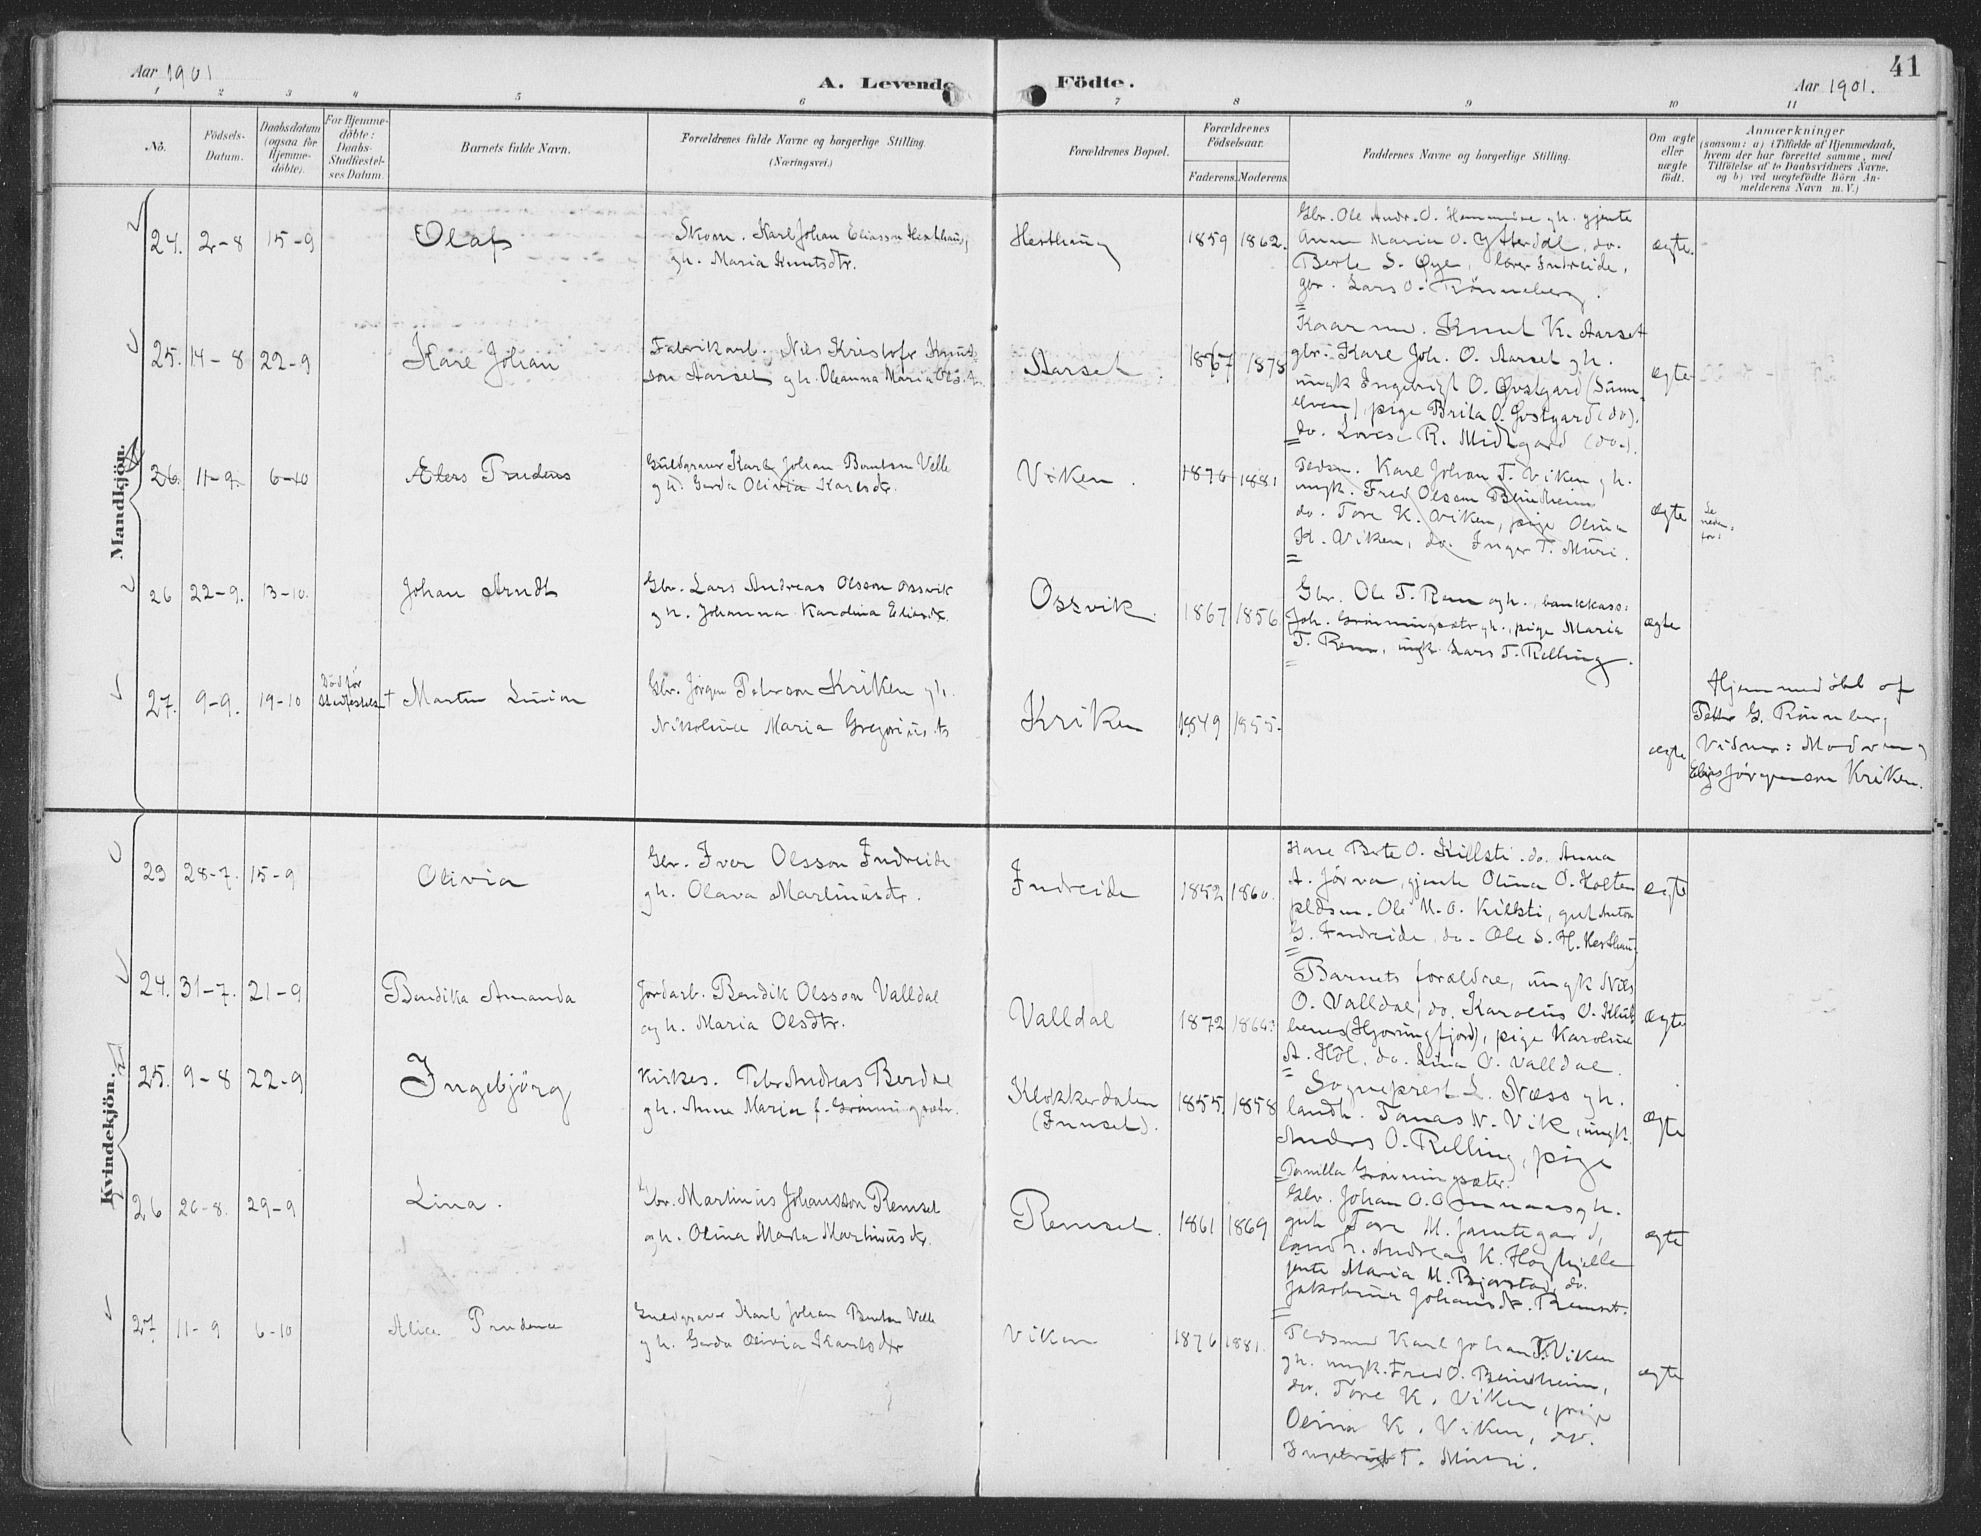 41
Aar 1901
A. Levende Födte.
Aar 1901.
1 2 3 4 5 6 7 8 9 10 11
No.
Födsels-
Datum.
Daabsdatum
(ogsaa for
Hjemme-
döbte).
For Hjemme-
döbte:
Daabs-
Stadfæstel-
ses Datum.
Barnets fulde Navn.
Forældrenes fulde Navne og borgerlige Stilling.
(Næringsvei.)
Forældrenes Bopæl.
Forældrenes
Födselsaar.
Faderens. Moderens.
Faddernes Navne og borgerlige Stilling.
Om ægte
eller
uægte
födt.
Anmærkninger
(saasom: a) i Tilfælde af Hjemmedaab,
hvem der har forrettet samme, med
Tilföielse af to Daabsvidners Navne,
og b) ved uægtefödte Börn An-
melderens Navn m. V.)
Mandkjön.
24. 2-8 15-9
Olaf
Skom. Karl Johan Eliasson Hesthaug,
gh. Maria Knutsdtr.
Hesthaug
1859 1862.
Gbr. Ole Andr. O. gh. gjente
Anne Maria O. Ytterdal, do.
Berte S. Øye, lærer Indreide,
gbr. Lars O. Rønneberg.
ægte.
25. 14-8 22-9
Kare Johan
Fabrikarb. Nils Kristofr Knud-
son Aarset gh. Oleanna Maria Ols.
Aarset.
1867 1878
Kaarm. Knut K. Aarset
gbr. Karl Joh. O. Aarset gh.
ungk Ingebrigt O. Øvstgard (Sunn-
elven), pige Brita O. Øvstgard (do).
do. Lovise R. Midtgard (do.).
ægte
26. 11-9. 6-10
Prudens
Guldgraver Karl Johan Berntsen Velle
gh. Gerda Olivia Karlsdtr.
Viken.
1876 1881
Pldsm. Karl Johan T. Viken gh.
ungk. Fred Olsson Blindheim
do. Tore K. Viken, pige Olina
K. Viken, do. Inger T. Muri.
ægte
Se
neden-
for!
26 22-9. 13-10.
Johan Arndt
Gbr. Lars Andreas Olsson Ossvik
gh. Johanna Karolina Eliasdtr.
Ossvik.
1867 1856
Gbr. Ole T. Rem gh., bankkass.
Joh. Grönningsætr gh., pige Maria
T. Rem, ungk Lars T. Relling.
ægte
27. 9-9. 19-10
Död før
Stadfæstels. †
Martin
Gbr. Jörgen Peterson Kriken gh.
Nikoline Maria Gregoriusdtr
Kriken
1849 1855.
ægte
Hjemmedöbt af
Petter G. Rönneberg
Vidner: Moderen og
Elias Jörgenson Kriken.
Kvindekjön.
23 28-7. 15-9
Olivia
Gbr. Iver Olsson Indreide
gh. Olava Martinusdtr.
Indreide
1852 1860.
Kone Berte O. Killsti. do. Anna
A. Jörva, gjente Olina O. Holten
pldsm. Ole M. O. Killsti, gut Anton
G. Indreide, do. Ole S. H. Hesthaug
ægte
24. 31-7. 21-9
Bendika Amanda
Jordarb. Bendik Olsson Valldal
og h. Maria Olsdtr.
Valldal
1872 1866.
Barnets forældre, ungk Nils
O. Valldal, do. Karolus O. Klub-
benes (Hjorungfjord), pige Karoline
A. Höl, do. Lina O. Valldal.
ægte
25. 9-8 22-9
Ingebjörg
Kirkes. Peter Andreas Berdal
gh. Anne Maria f. Grönningsætr.
Klokkerdalen
(Innset).
1855. 1858
Sogneprest L. Næss gh.
landh. Tomas N. Vik, ungk.
Anders O. Relling, pige
Pernilla Grönningsæter.
ægte
26 20-8. 29-9
Lina.
Gbr. Martinus Johansson Remset
og h. Olina Marta Martinusdtr.
Remset.
1861 1869
Gbr. Johan O. Omenaas gh.
gut Tore M. Jamtegard,
landh. Andreas K. Höghjelle
jente Maria M. Bjørstad, do.
Jakobina Johansdtr. Remset.
ægte
27 11-9 6-10
Alice Prudence
Guldgraver Karl Johan Berntsen Velle
gh. Gerda Olivia Karlsdtr
Viken
1876 1881.
Pldsmd Karl Johan T. Viken
gh. ungk. Fred O. Blindheim,
do. Tore K. Viken, pige
Olina K. Viken, do.
T. Muri.
ægte